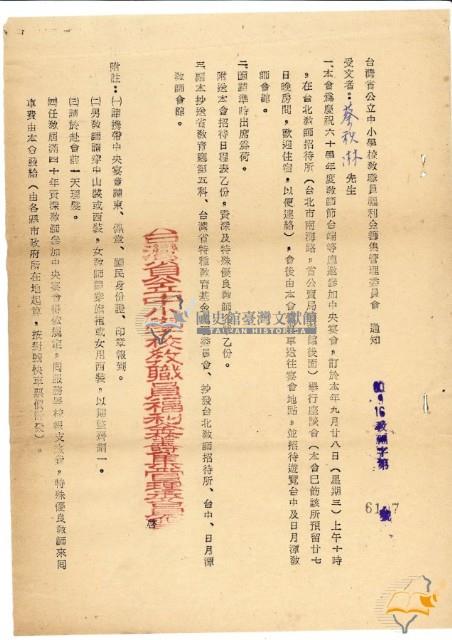 台灣省公立中小學校教職員福利金籌集管理委員會 通知
60.9.16教福字第6107號
受文者：蔡秋淋 先生
一、本會為慶祝六十學年度教師節台端等應邀參加中央宴會，訂於本年九月廿八日（星期三）上午十時
，在台北教師招待所（台北市南海路，省公賣局後面）舉行座談會（本會已飭該所預留廿七
日晚房間，歡迎住宿，以便連絡），會後由本會專車送往宴會地點，並招待遊覽台中及日月潭教
師會館。
二、函請準時出席為荷。
附送本會招待日程表乙份，資深及特殊優良教師乙份。
三、副本抄送省教育廳第五科、台灣省特種教育基金委員會，抄發台北教師招待所、台中、日月潭
教師會館。
台灣省公立中小學校教職員福利金籌集管理委員會 啓
附註：㈠請攜帶中央宴會請柬、佩章、國民身份證、印章報到。
㈡男教師請穿中山裝或西裝，女教師請穿旗袍或女用西裝，以期整齊劃一。
㈢請於赴會前一天理髮。
㈣任教屆滿四十年資深教師參加中央宴會得依規定，向服務學校報支旅費，特殊優良教師來回
車費由本會發給（由各縣市政府所在地起算，按對號快車票價發給）。
國史館臺灣文獻館
TAIWAN HISTORICA